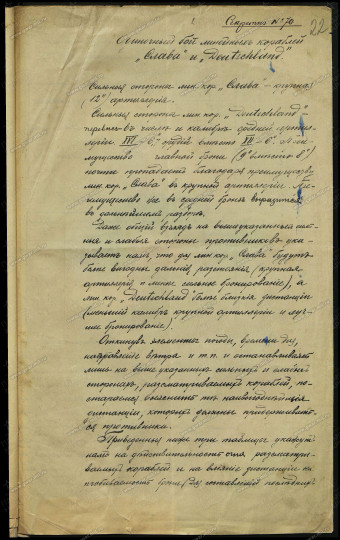 Секретно № 70
22
Одиночный бой линейных кораблей
„Слава" и „Deutschland"
Сильная сторона лин. кор. „Слава" – крупная
(12") артиллерия.
Сильная сторона лин. кор. „Deutschland"
число и калибр средней артил-
лерии XIV – 6,7" орудий вместо XII – 6". Преи-
мущество главной брони (9" вместо 8")
почти пропадает благодаря преимуществу
лин. кор. „Слава" в крупной артиллерии.
Даже общий взгляд на вышеуказанные силь-
ные и слабые стороны противников ука-
зывает нам, что для лин. кор. „Слава" будут
более выгодны дальние расстояния (крупная
артиллерия и менее сильное бронирование), а
лин. кор. „Deutschland" более близкие дистанции
(меньший калибр крупной артиллерии и луч-
шее бронирование).
Откинув элементы погоды, времени дня,
направление ветра и т.п. и останавливаясь
лишь на выше указанных сильных и слабых
сторонах, рассматриваемых кораблей, по-
стараемся выяснить те наивыгоднейшие
дистанции, которых должны придерживать-
ся противники.
Приведенные ниже три таблицы указыва-
ют на действительность огня рассматри-
ваемых кораблей и на влияние дистанции на
пробиваемость брони